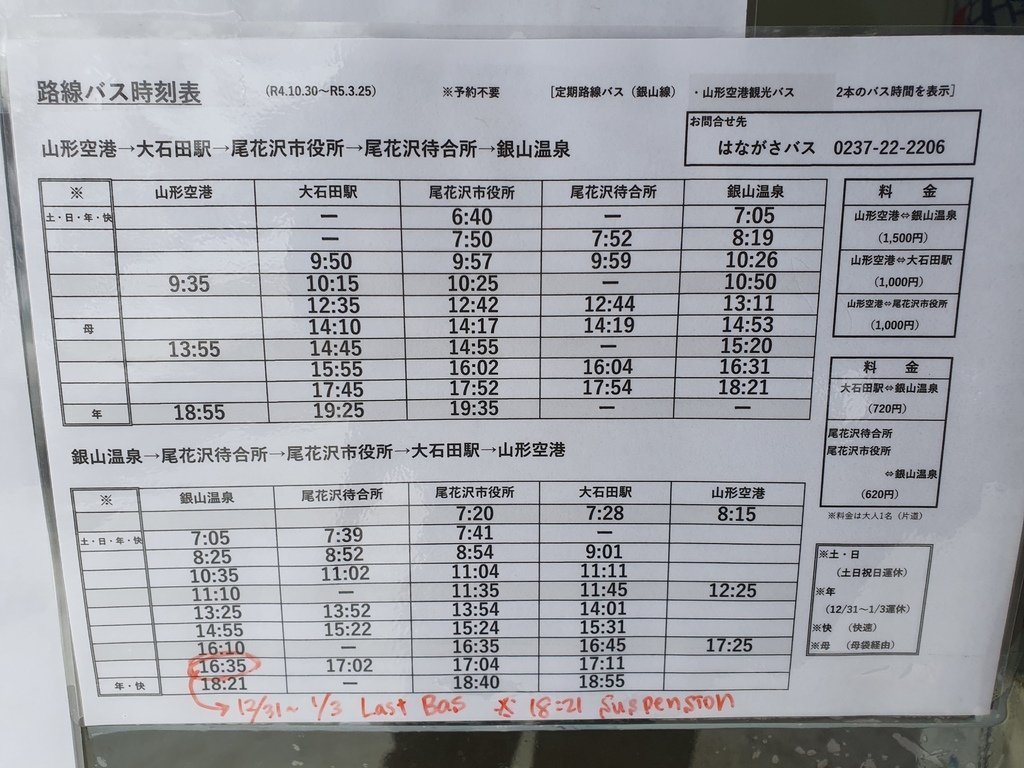 路線バス時刻表 (R4.10.30～R5.3.25) ※予約不要 [定期路線バス（銀山線） ・山形空港観光バス 2本のバス時間を表示]
お問合せ先
はながさバス 0237-22-2206
山形空港→大石田駅→尾花沢市役所→尾花沢待合所→銀山温泉
※ 山形空港 大石田駅 尾花沢市役所 尾花沢待合所 銀山温泉
土・日・年・快 ー 6:40 ー 7:05
ー 7:50 7:52 8:19
9:50 9:57 9:59 10:26
9:35 10:15 10:25 ー 10:50
12:35 12:42 12:44 13:11
母 14:10 14:17 14:19 14:53
13:55 14:45 14:55 ー 15:20
15:55 16:02 16:04 16:31
17:45 17:52 17:54 18:21
年 18:55 19:25 19:35 ー ー
料 金
山形空港⇔銀山温泉
（1,500円）
山形空港⇔大石田駅
（1,000円）
山形空港⇔尾花沢市役所
（1,000円）
料 金
大石田駅⇔銀山温泉
（720円）
尾花沢待合所
尾花沢市役所
⇔銀山温泉
（620円）
※料金は大人1名（片道）
銀山温泉→尾花沢待合所→尾花沢市役所→大石田駅→山形空港
※ 銀山温泉 尾花沢待合所 尾花沢市役所 大石田駅 山形空港
7:20 7:28 8:15
土・日・年・快 7:05 7:39 7:41 ー
8:25 8:52 8:54 9:01
10:35 11:02 11:04 11:11
11:10 ー 11:35 11:45 12:25
13:25 13:52 13:54 14:01
14:55 15:22 15:24 15:31
16:10 ー 16:35 16:45 17:25
16:35 17:02 17:04 17:11
年・快 18:21 ー 18:40 18:55
※土・日
（土日祝日運休）
※年
（12/31～1/3運休）
※快 （快速）
※母 （母袋経由）
→12/31～1/3 Last Bas ※ 18:21 Suspension